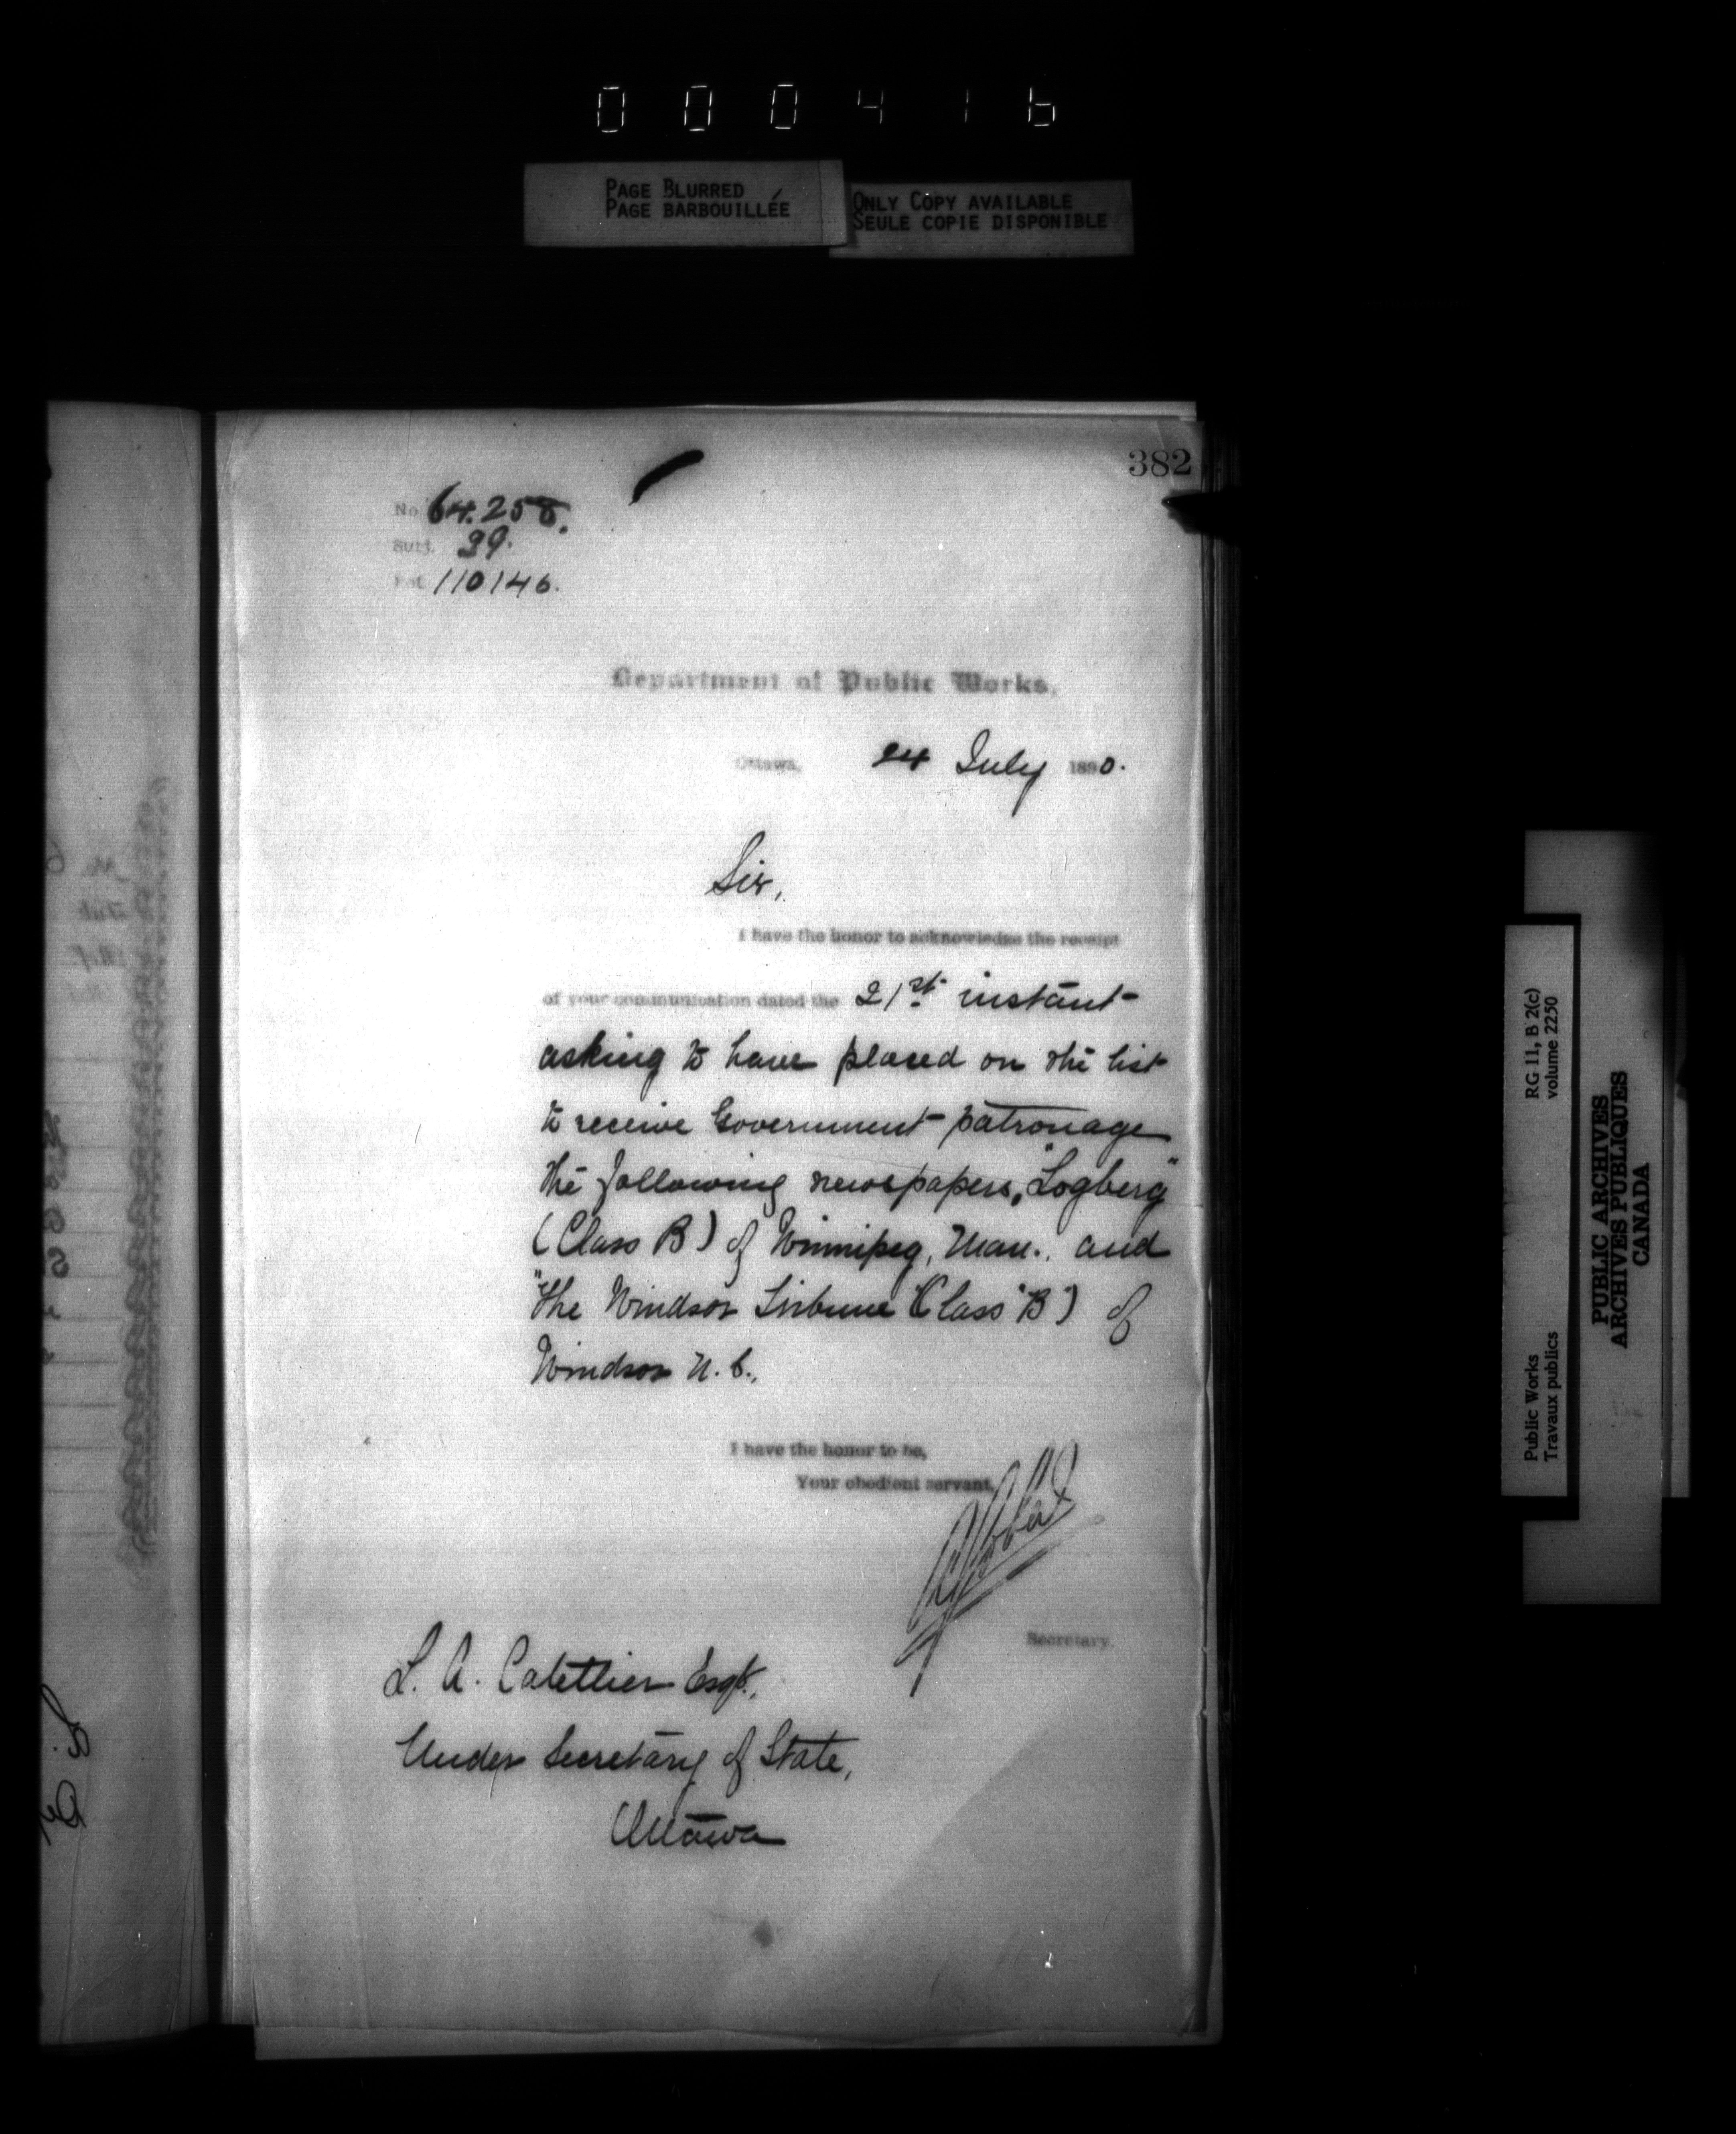 000416
PAGE BLURRED
PAGE BARBOUILLÉE
ONLY COPY AVAILABLE
SEULE COPIE DISPONIBLE
382
No 64.258.
Subj. 39.
Ref. 110146.
Department of Public Works,
Ottawa, 24 July 1890.
Sir,
I have the honor to acknowledge the receipt
of your communication dated the 21st instant
asking to have placed on the list
to receive Government patronage
the following newspapers, "Logberg"
(Class B) of Winnipeg, Man., and
"The Windsor Tribune" (Class "B") of
Windsor N.S.,
I have the honor to be,
Your obedient servant,
Secretary.
L. A. Catellier Esqr.,
Under Secretary of State,
Ottawa
Public Works
Travaux publics
RG 11, B 2(c)
volume 2250
PUBLIC ARCHIVES
ARCHIVES PUBLIQUES
CANADA